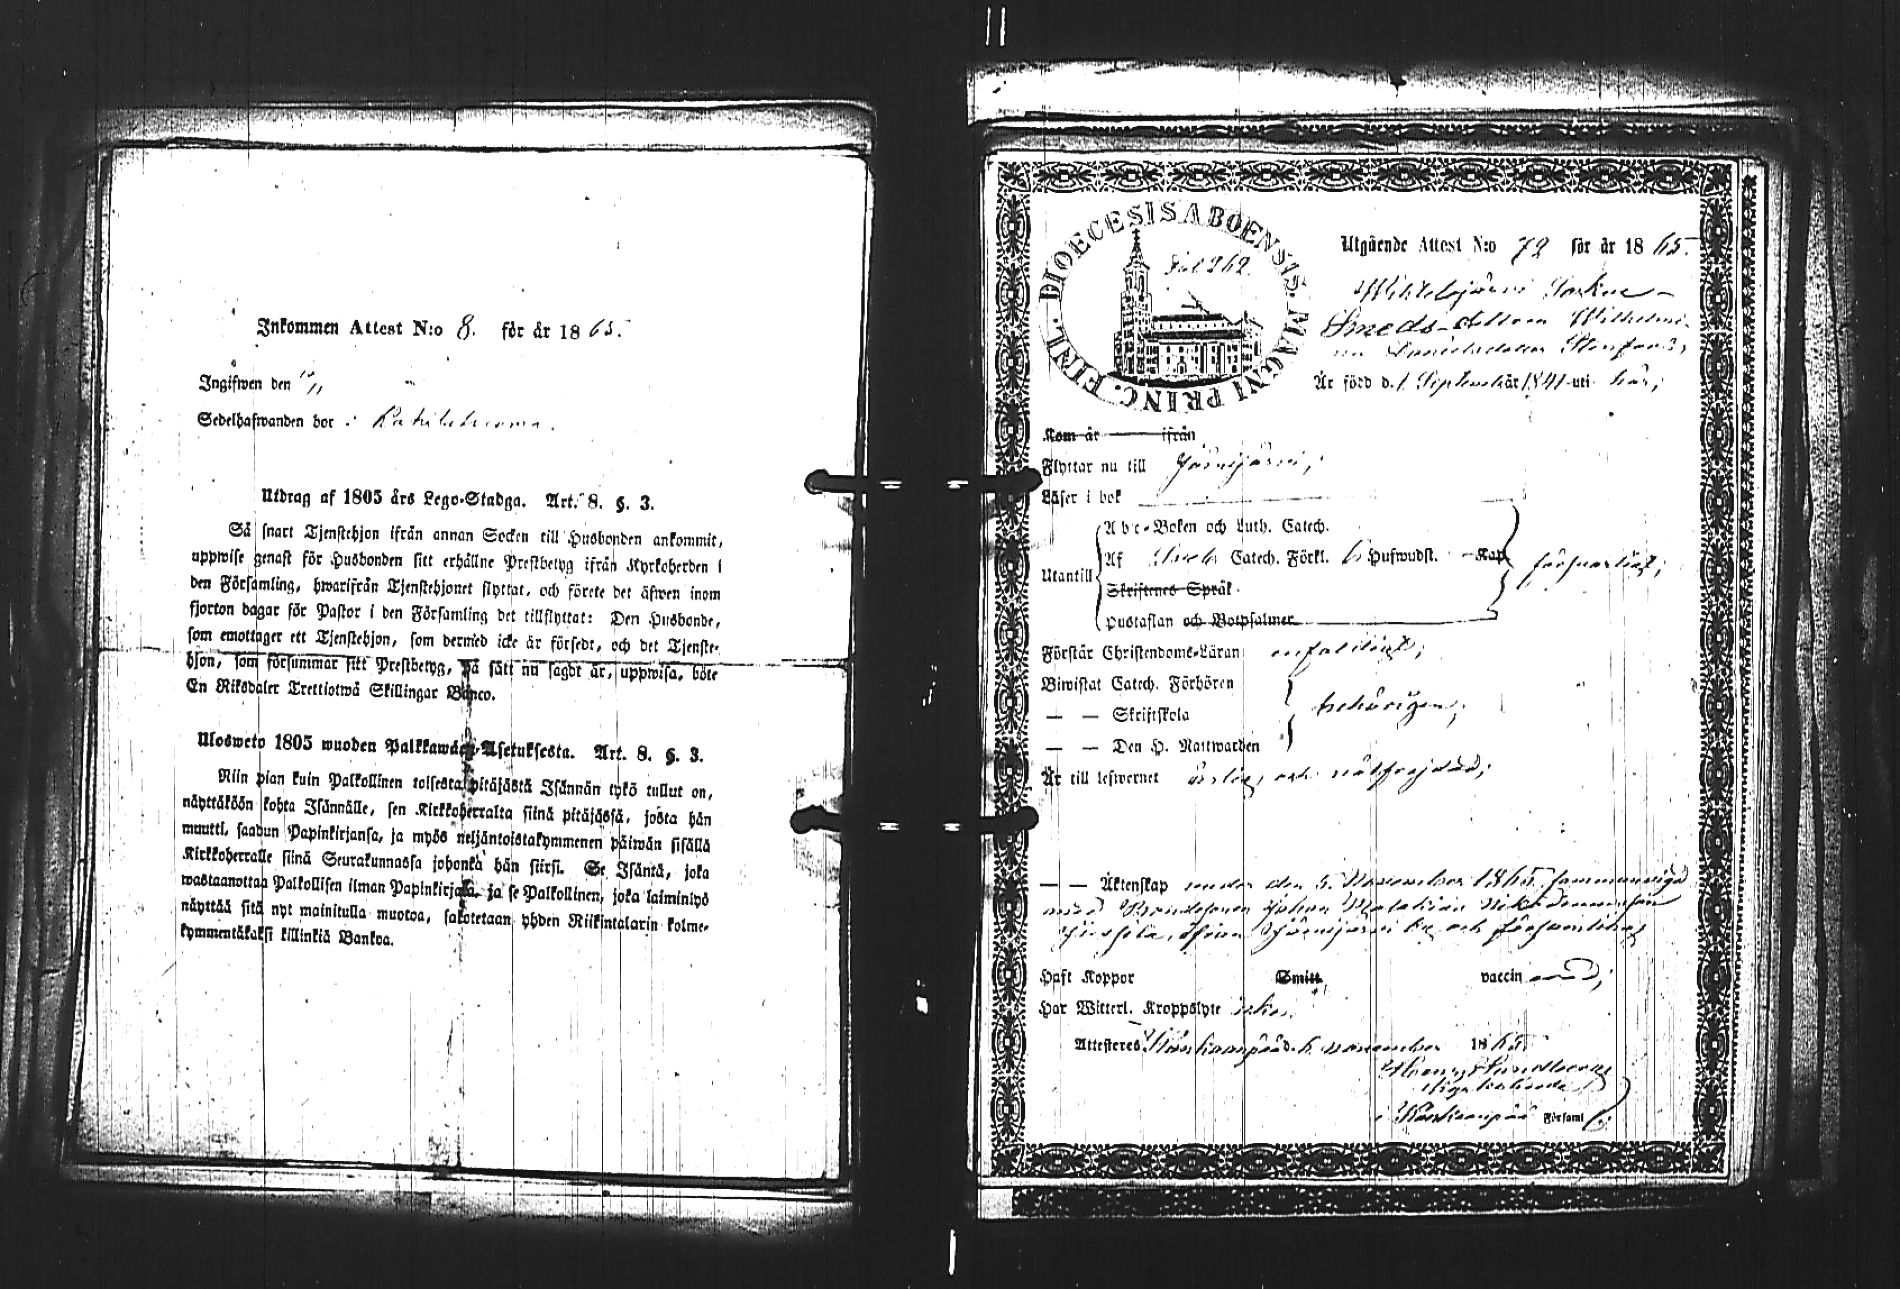 Inkommen Attest N:o 8. för år 1865.
Ingifwen den 10/11
Sedelhafwanden bor i
Utdrag af 1805 års Lego-Stadga. Art. 8. §. 3.
Så snart Tjenstehjon ifrån annan Socken till Husbonden ankommit,
uppwise genast för Husbonden sitt erhållne Prestbetyg ifrån Kyrkoherden i
den Församling, hwarifrån Tjenstehjonet flyttat, och förete det äfwen inom
fjorton dagar för Pastor i den Församling det tillflyttat: Den Husbonde,
som emottager ett Tjenstehjon, som dermed icke är försedt, och det Tjenste-
hjon, som försummar sitt Prestbetyg, på sätt nu sagdt är, uppwisa, böte
En Riksdaler Trettiotwå Skillingar Banco.
Ulosweto 1805 wuoden Palkkawäen-Asetuksesta. Art. 8. §. 3.
Niin pian kuin Palkollinen toisesta pitäjästä Isännän tykö tullut on,
näyttäköön kohta Isännälle, sen Kirkkoherralta siinä pitäjässä, josta hän
muutti, saadun Papinkirjansa, ja myös neljäntoistakymmenen päiwän sisällä
Kirkkoherralle siinä Seurakunnassa johonka hän siirsi. Se Isäntä, joka
wastaanottaa Palkollisen ilman Papinkirjata, ja se Palkollinen, joka laiminlyö
näyttää sitä nyt mainitulla muotoa, sakotetaan yhden Riikintalarin kolme-
kymmentäkaksi killinkiä Bankoa.
DIOECESIS ABOENSIS. MAGNI PRINC. FINL.
Fol 262
Utgående Attest N:o 72 för år 1865.
Smeds-dottern Wilhelmi-
na Danielsdotter
Är född d. 1 September år 1841 uti här;
Kom år ifrån
Flyttar nu till Jämijärvi;
Läser i bok
Utantill
Abc-Boken och Luth. Catech.
Af Catech. Förkl. 6 Hufwudst. Kap. försvarligt;
Skriftenes Språk
Hustaflan och Botpsalmer
Förstår Christendoms-Läran enfaldigt;
Biwistat Catech. Förhören
— — Skriftskola behörigen;
— — Den H. Nattwarden
Är till lefwernet ärlig och wälfrejdad;
— — Äktenskap under den 5 November 1865 sammanvigd
med Bondesonen Johan
Jämijärvi och försvarlikas
Haft Koppor Smitt vaccin
Har Witterl. Kroppslyte icke.
Attesteras Kankaanpää d. 6 november 1865.
Sundberg
i Kankaanpää Församl.